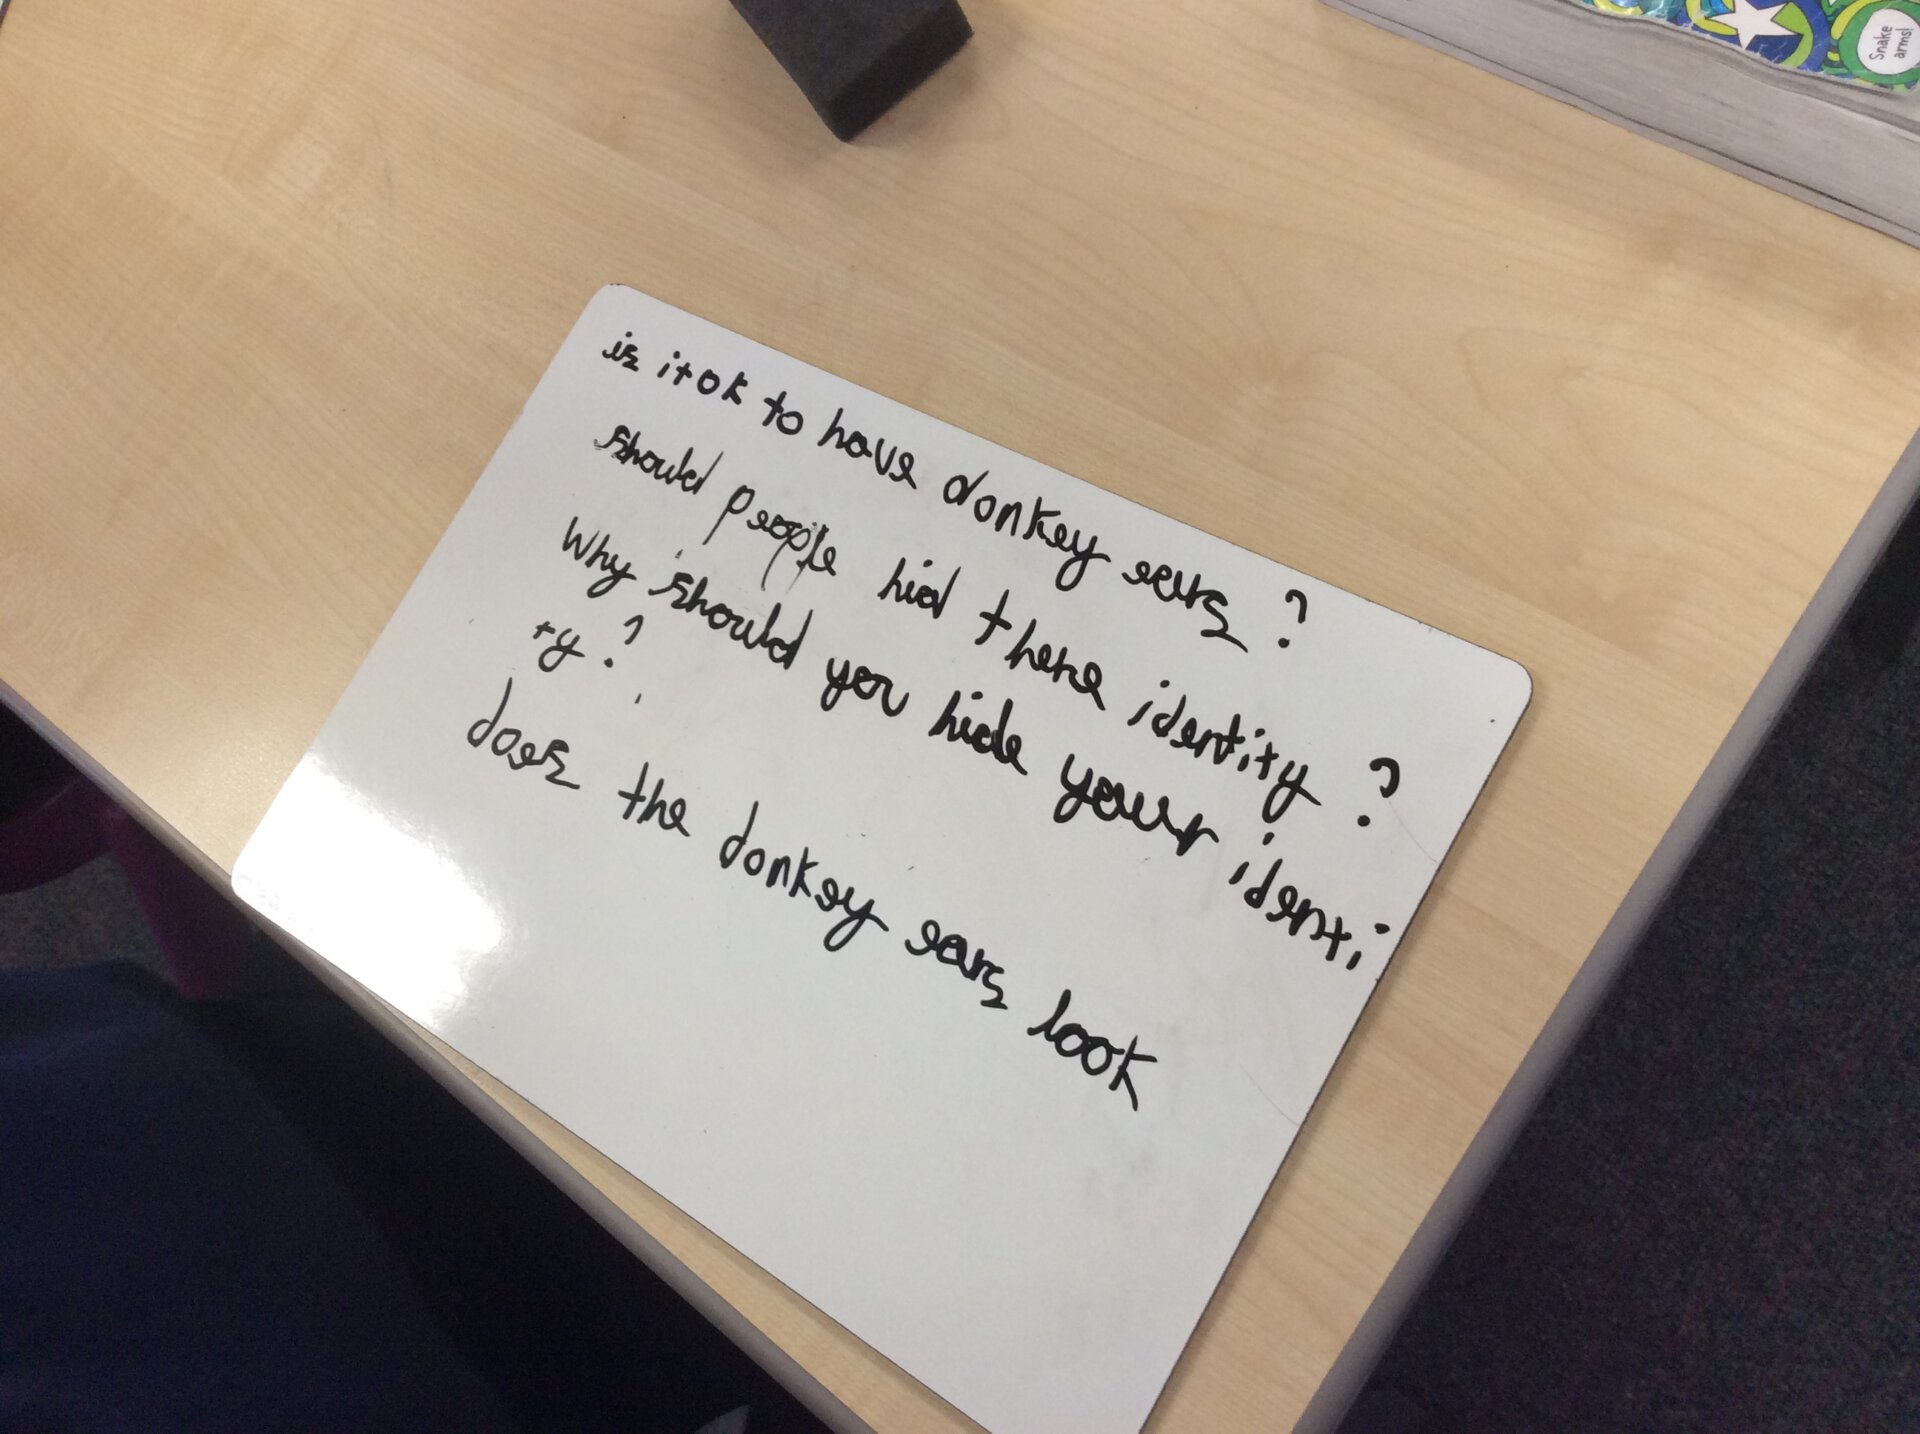 is it ok to have donkey ears ?
should people hid there identity ?
Why should you hide your identi
ty ?
does the donkey ears look
Snake
arms!